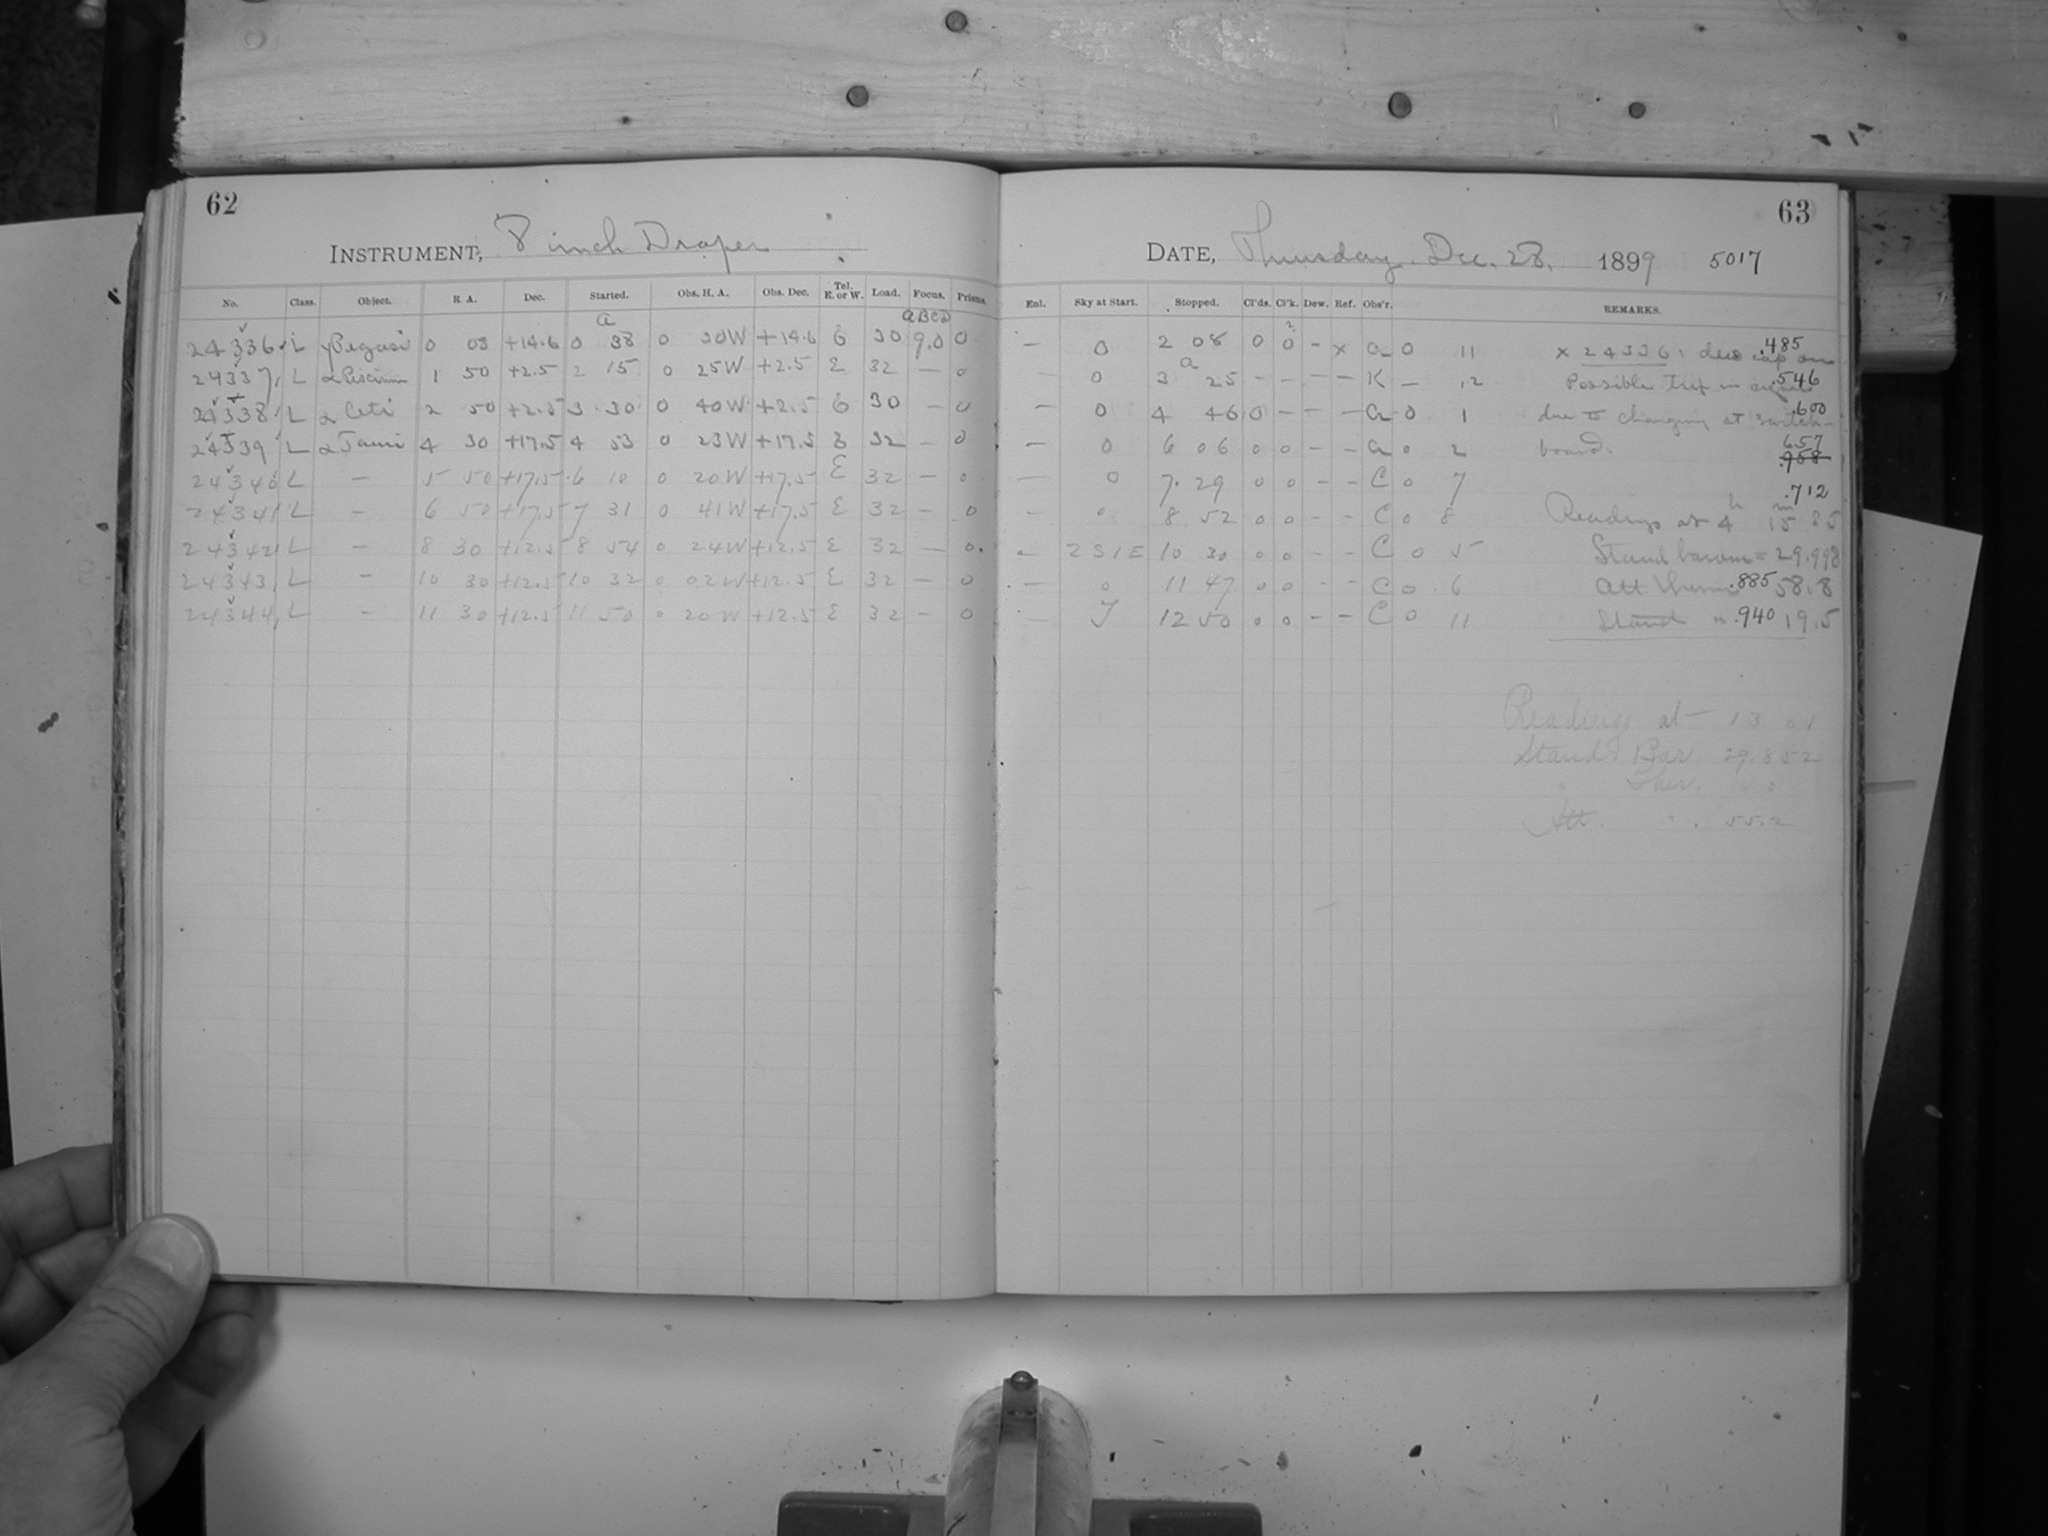 62
INSTRUMENT, 8 inch Draper
No. Class. Object. R. A. Dec. Started. Obs. H. A. Obs. Dec. Tel. E. or W. Load. Focus. Prisms.
a ABCD
24336 L γ Pegasi 0 08 +14.6 0 38 0 30W +14.6 E 30 9.0 0
24337 L α Piscium 1 50 +2.5 2 15 0 25W +2.5 E 32 — 0
24338 L α Ceti 2 50 +2.5 3 30 0 40W +2.5 E 30 — 0
24339 L α Tauri 4 30 +17.5 4 53 0 23W +17.5 E 32 — 0
24340 L — 5 50 +17.5 6 10 0 20W +17.5 E 32 — 0
24341 L — 6 50 +17.5 7 31 0 41W +17.5 E 32 — 0
24342 L — 8 30 +12.5 8 54 0 24W +12.5 E 32 — 0
24343 L — 10 30 +12.5 10 32 0 02W +12.5 E 32 — 0
24344 L — 11 30 +12.5 11 50 0 20W +12.5 E 32 — 0
63
DATE, Thursday, Dec. 28, 1899 5017
Enl. Sky at Start. Stopped. Cl'ds. Cl'k. Dew. Ref. Obs'r. REMARKS.
— 0 2 08 0 0 - x a 0 11 x 24336: dew cap on .485
— 0 3 25 - - - - K — 12 Possible trip in .546
— 0 4 46 0 - - - a 0 1 due to changing at switch- .600
— 0 6 06 0 0 - - a 0 2 board. .657
.958
— 0 7 29 0 0 - - C 0 7 .712
— 0 8 52 0 0 - - C 0 8 Readings at 4h 15m 85
— 2S1E 10 30 0 0 - - C 0 5 Stand barom = 29.998
— 0 11 47 0 0 - - C 0 6 Att. Therm .885 58.8
— 12 50 0 0 - - C 0 11 Stand " .940 19.5
Readings at — 13 01
Stand Bar. 29.852
" Ther.
Att. " . 55.2